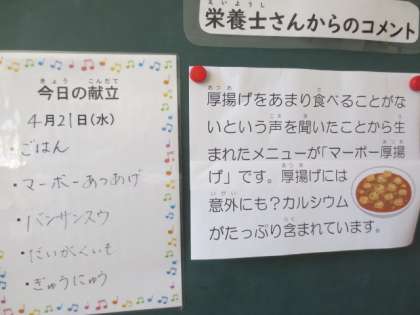 栄養士さんからのコメント
今日の献立
4月21日(水)
・ごはん
・マーボーあつあげ
・バンサンスウ
・だいがくいも
・ぎゅうにゅう
厚揚げをあまり食べることがな
いという声を聞いたことから生
まれたメニューが「マーボー厚揚
げ」です。厚揚げには
意外にも?カルシウム
がたっぷり含まれています。